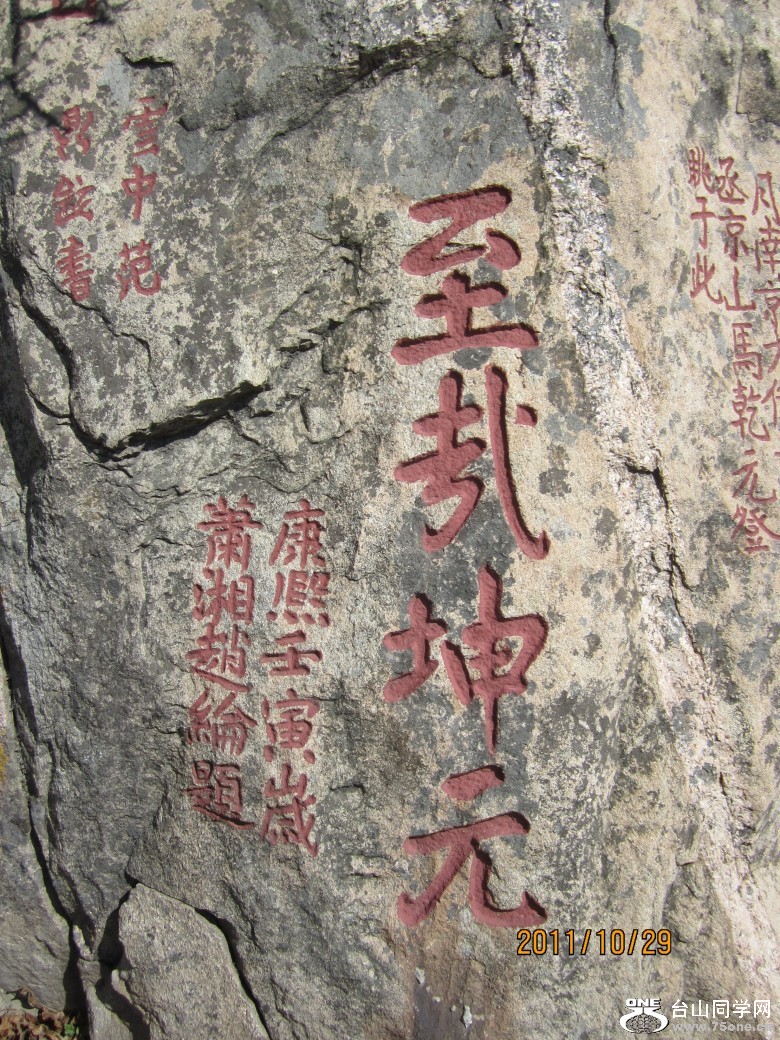 月南京
丞京山馬乾元登
眺于此
至哉坤元
康熙壬寅歲
蕭湘趙綸題
雲中范
書
2011/10/29
ONE 台山同学网
www.75one.cn